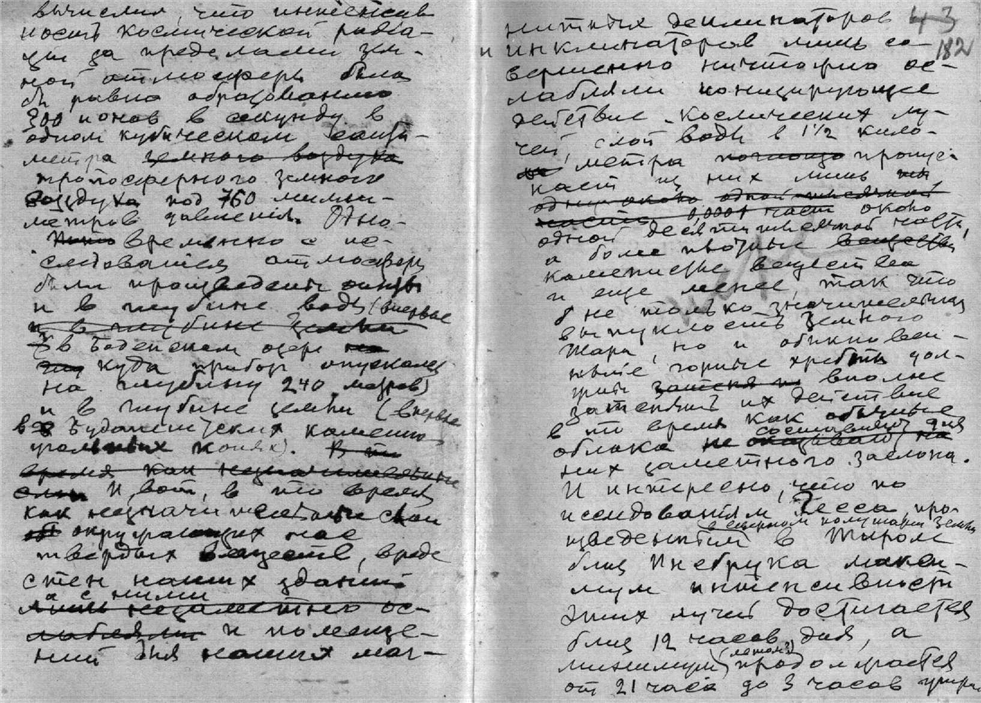 вычислил, что интенсив
ность космической радиа-
ции за пределами зем-
ной атмосферы была
бы равна образованию
200 ионов в секунду в
одном кубическом санти-
метра земного воздуха
тропосферного земного
воздуха под 760 милли-
метров давления. Одно-
временно с ис-
следованием атмосферы
были произведены опыты
и в глубине воды (впервые
и в глубине земли
в Боденском озере на
куда прибор опускался
на глубину 240 метров)
и в глубине земли (впервые
в Будапештских каменно-
угольных копях). В то
время как незначительные
слои И вот, в то время
как незначительные слои
окружающих нас
твердых веществ, вроде
стен наших зданий
а с ними
лишь незаметно ос-
лабляли и помеще-
ний для наших маг-
43
182
нитных деклинаторов
и инклинаторов лишь со-
вершенно ничтожно ос-
лабляли ионизирующее
действие космических лу-
чей, слой воды в 1½ кило-
метра поглоща пропус-
кает из них лишь
одну около одной тысячной
часть 0,0001 часть около
одной десятитысячной части,
а более плотные вещества
каменистые вещества
и еще менее, так что
не только значительная
выпуклость земного
шара, но и обыкновен-
ные горные хребты дол-
жны вполне
затенять их действие
в то время как обычные
облака не составляют для
оказывают на
них заметного заслона.
И интересно, что по
исследованиям Гесса, про-
в северном полушарии Земли
изведенным в Тироле
близ Инсбрука макси-
мум интенсивности
этих лучей достигается
близ 12 часов дня, а
минимум (летом) продолжается
от 21 часа до 3 часов утра